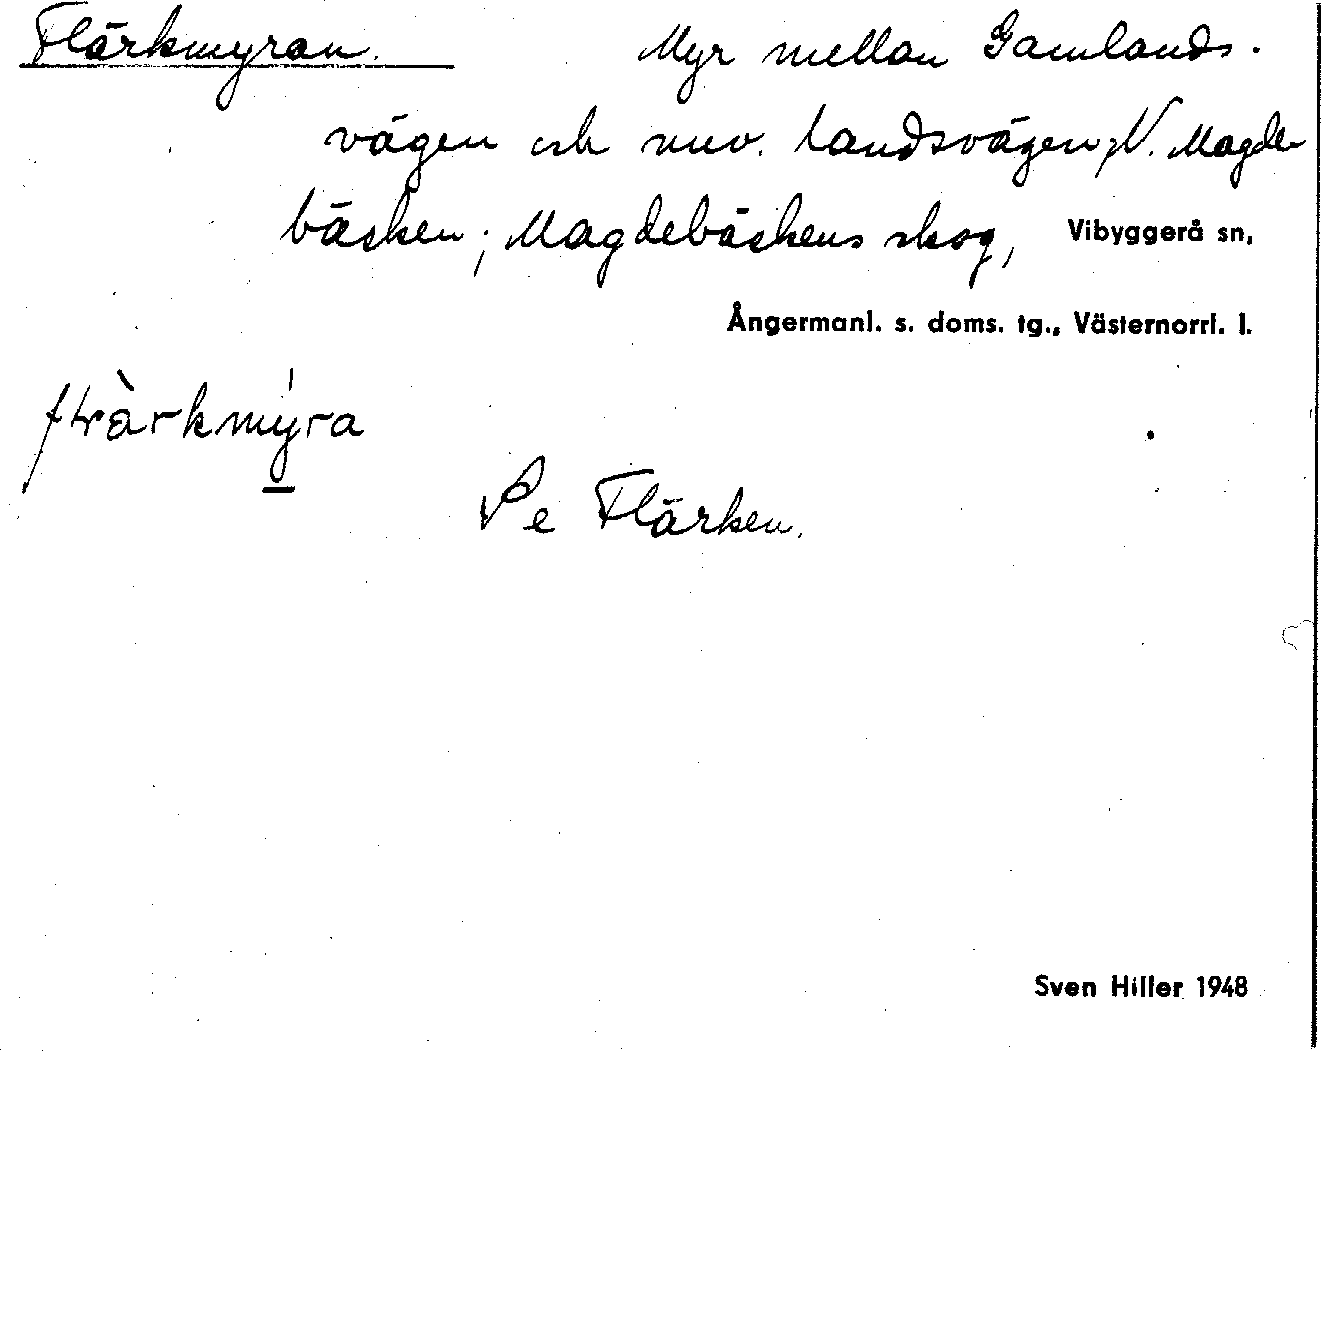 Flärkmyran. Myr mellan Gamlands-
vägen och nuv. landsvägen, N. Magde-
bäcken; Magdebäckens skog, Vibyggerå sn,
Ångermanl. s. doms. tg., Västernorrl. l.
Se Flärken.
Sven Hiller 1948